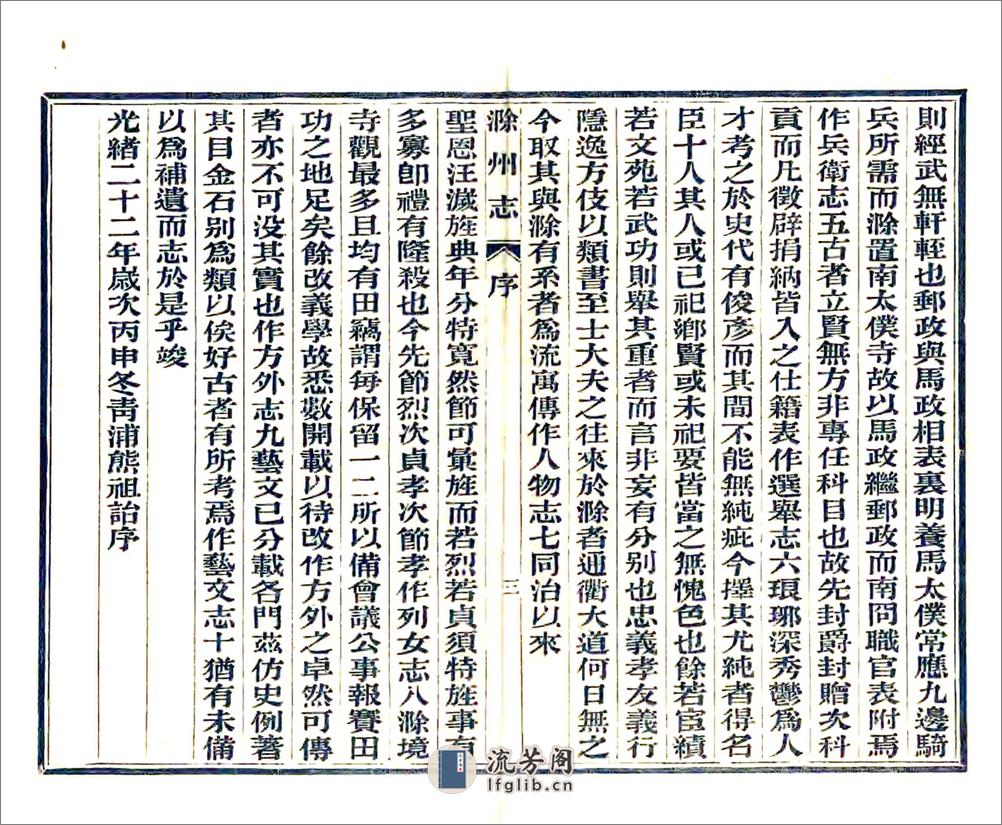 則經武無軒輊也郵政與馬政相表裏明養馬太僕常應九邊騎
兵所需而滁置南太僕寺故以馬政繼郵政而南冏職官表附焉
作兵衛志五古者立賢無方非專任科目也故先封爵封贈次科
貢而凡徵辟捐納皆入之仕籍表作選舉志六琅琊深秀鬱爲人
才考之於史代有俊彥而其間不能無純疵今擇其尤純者得名
臣十人其人或已祀鄉賢或未祀要皆當之無愧色也餘若宦績
若文苑若武功則舉其重者而言非妄有分別也忠義孝友義行
隱逸方伎以類書至士大夫之往來於滁者通衢大道何日無之
今取其與滁有系者爲流寓傳作人物志七同治以來
滁州志 序 三
聖恩汪濊旌典年分特寬然節可彙旌而若烈若貞須特旌事有
多寡卽禮有隆殺也今先節烈次貞孝次節孝作列女志八滁境
寺觀最多且均有田竊謂每保留一二所以備會議公事報賽田
功之地足矣餘改義學故悉數開載以待改作方外之卓然可傳
者亦不可没其實也作方外志九藝文已分載各門茲仿史例著
其目金石別爲類以俟好古者有所考焉作藝文志十猶有未備
以爲補遺而志於是乎竣
光緒二十二年歲次丙申冬靑浦熊祖詒序
流芳阁
lfglib.cn